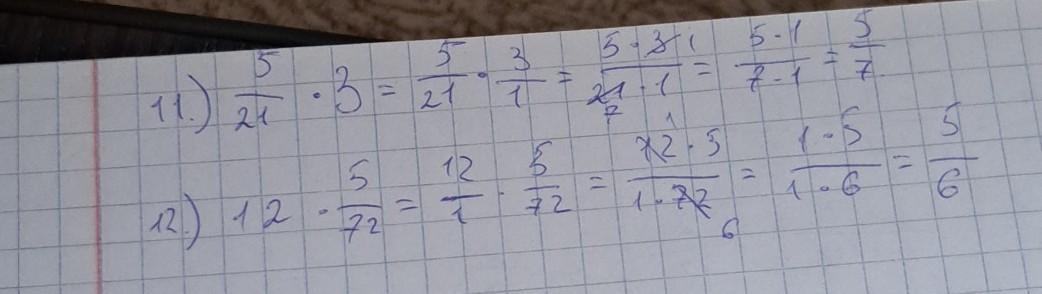 11.) 5/21 · 3 = 5/21 · 3/1 = 5·3 1/21·1 7 = 5·1/7·1 = 5/7
12.) 12 · 5/72 = 12/1 · 5/72 = 1 12·5/1·72 6 = 1·5/1·6 = 5/6